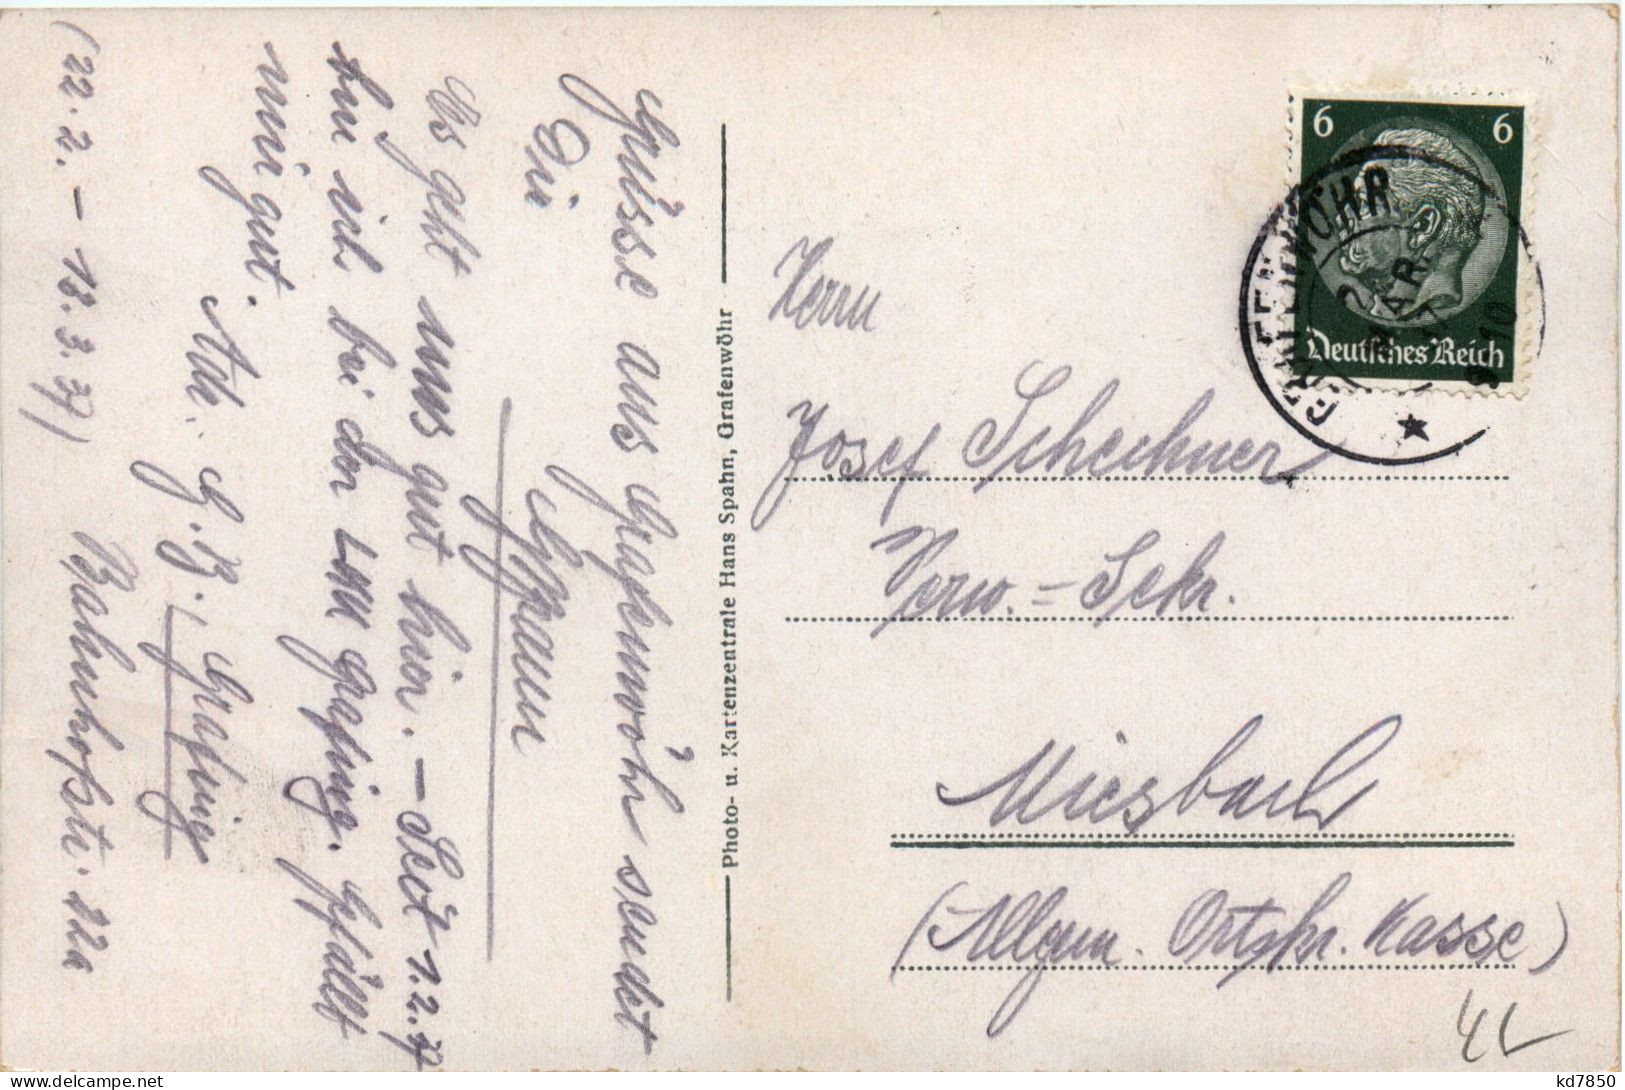 Grüsse aus Grafenwöhr sendet
Dir
Es geht uns gut hier. - Seit 1.2.37
bin ich bei der grafing. Gefällt
mir gut.
Adr. H.Z., Grafing
Bahnhofstr. 22a
(22.2. - 13.3.37)
Photo- u. Kartenzentrale Hans Spahn, Grafenwöhr
6 6
Deutsches Reich
GRAFENWÖHR
2
MAR.
37
9 10
Herrn
Josef Schechner
Verw.=Sekr.
Miesbach
(Allgem. Ortskr. Kasse)
kd7850